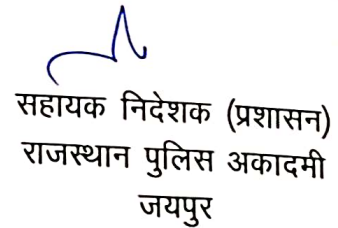 सहायक निदेशक (प्रशासन)
राजस्थान पुलिस अकादमी
जयपुर